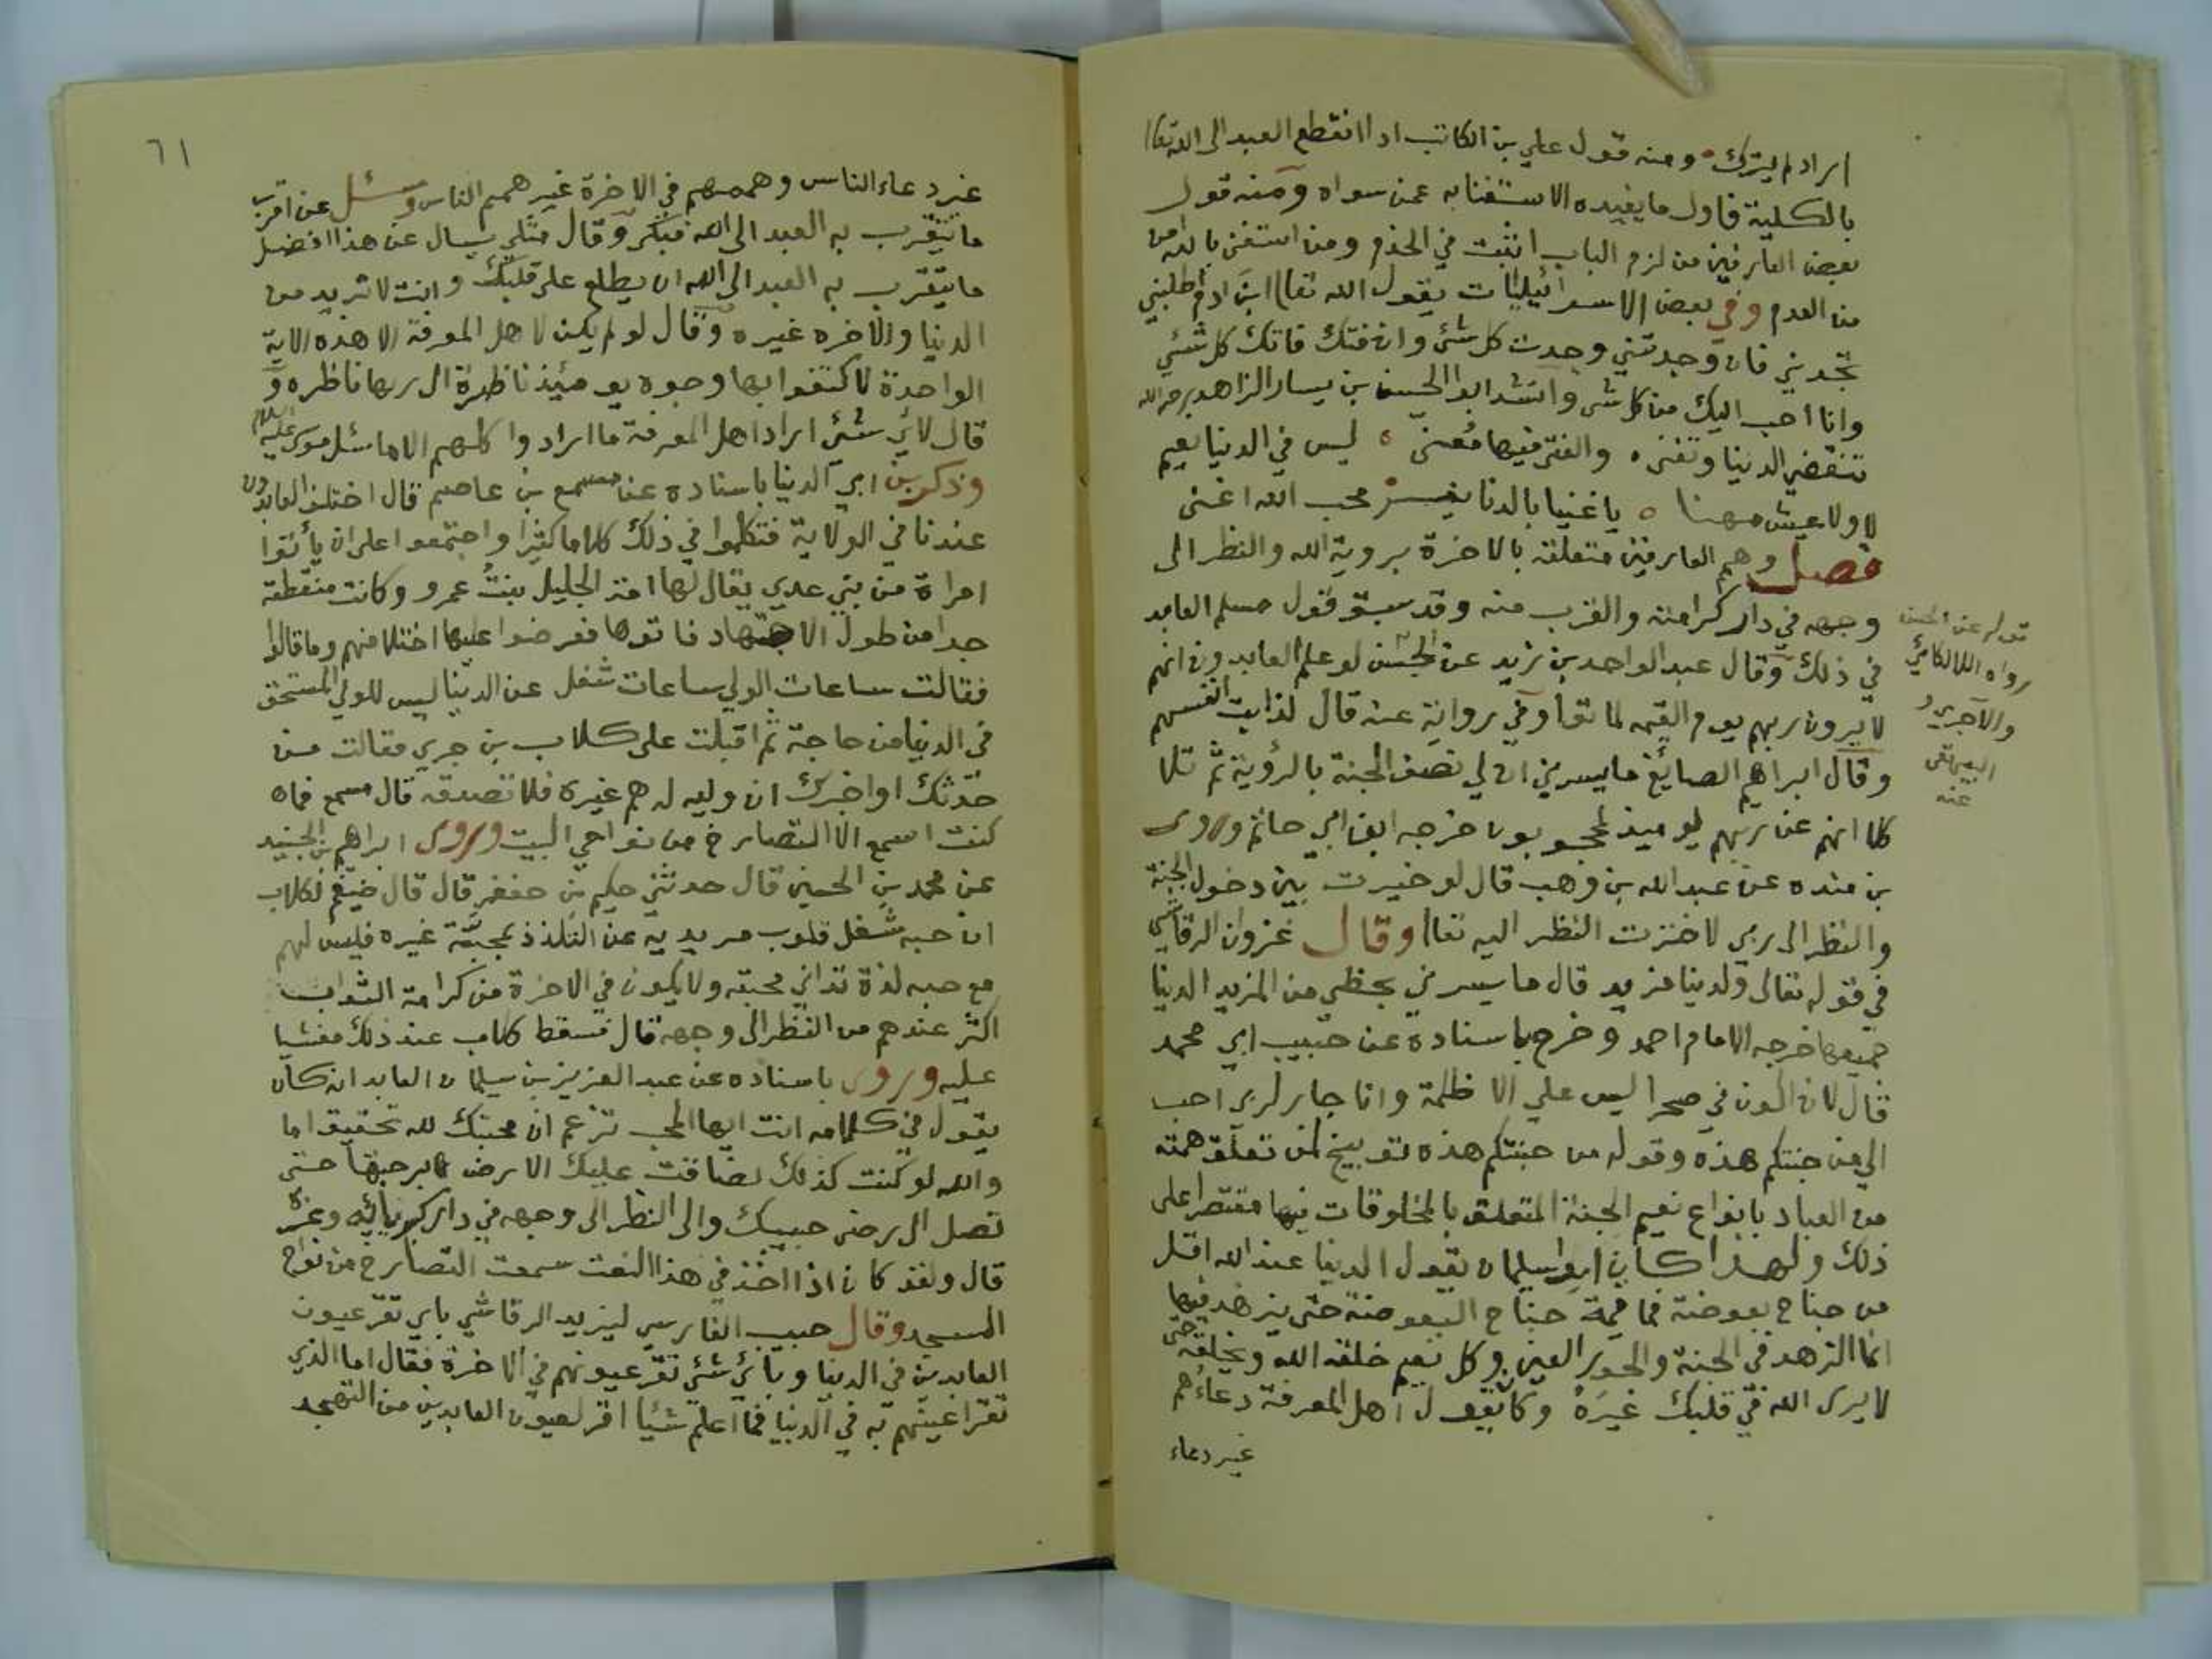 اراد لم يترك ومنه قول علي بن الكاتب اذا انقطع العبد الى الله تعا
بالكلية فاول ما يفيده الاستغنا به عمن سواه ومنه قول
بعض العارفين من لزم الباب اثبت في الخدم ومن استغنى بالله امن
من العدم وفي بعض الاسرائيليات يقول الله تعا ابن ادم اطلبني
تجدني فان وجدتني وجدت كل شئ وان فتك فاتك كل شئ
وانا احب اليك من كل شى وانشد ابو الحسن بن يسار الزاهد رحمه الله
تنقضي الدنيا وتفنى ه والفتى فيها مُعنّى ه ليس في الدنيا نعيم
لا ولا عيش مهنا ه يا غنيا بالدنا محب الله اغنى
فصل وهم العارفين متعلقة بالاخرة بروية الله والنظر الى
وجهه في دار كرامته والقرب منه وقد سبق قول مسلم العابد
في ذلك وقال عبد الواحد بن زيد عن الحسن لو علم العابدون انهم
لا يرون ربهم يوم القيمه لماتوا وفي رواية عنه قال لذابت انفسهم
وقال ابراهيم الصايغ ما يسرني ان لي نصف الجنة بالرؤية ثم تلا
كلا انهم عن ربهم يوميذ لمحجوبون خرجه ابن ابي حاتم وروى
بن منده عن عبد الله بن وهب قال لو خيرت بين دخول الجنة
والنظر الى ربي لاخترت النظر اليه تعا وقال غزوان الرقاشي
في قوله تعالى ولدينا مزيد قال ما يسرني بحظي من المزيد الدنيا
جميعها خرجه الامام احمد وخرج باسناده عن حبيب ابي محمد
قال لان اكون في صحرا ليس علي الا ظلمة وانا جار لربي احب
الي من جنتكم هذه وقوله من جنتكم هذه توبيخ لمن تعلق همته
من العباد بانواع نعيم الجنة المتعلق بالمخلوقات فيها مقتصرا على
ذلك ولهذا كان ابو سليمان يقول الدنيا عند الله اقل
من جناح بعوضة فما قيمة جناح البعوضة حتى يزهد فيها
انما الزهد في الجنة والحور العين وكل نعيم خلقه الله ويخلقه حتى
لا يرى الله في قلبك غيره وكان يقول اهل المعرفة دعاءهم
غير دعاء
قوله عن الحسن
رواه اللالكائي
والآجري و
البيهقي
عنه
٦١
غير دعاء الناس وهممهم في الاخرة غير همم الناس وسئل عن اقرب
ما يتقرب به العبد الى الله فبكى وقال مثلي يسال عن هذا افضل
ما يتقرب به العبد الى الله ان يطلع على قلبك وانت لا تريد من
الدنيا والاخره غيره وقال لو لم يكن لاهل المعرفة الا هذه الاية
الواحدة لاكتفوا بها وجوه يومئيذ ناظرة الى ربها ناظره و
قال لاي شئي اراد اهل المعرفة ما ارادوا كلهم الا ما سئل موسى عليه السلام
وذكر بن ابي الدنيا باسناده عن مسمع بن عاصم قال اختلف العابدون
عندنا في الولاية فتكلموا في ذلك كلاما كثيرا واجتمعوا على ان يأتوا
امراة من بني عدي يقال لها امة الجليل بنت عمرو وكانت منقطعة
جدا من طول الاجتهاد فاتوها فعرضوا عليها اختلافهم وما قالوا
فقالت ساعات الولي ساعات شغل عن الدنيا ليس للولي المستحق
في الدنيا من حاجة ثم اقبلت على كلاب بن جري فقالت من
حدثك او اخبرك ان وليه له هم غيره فلا تصدقه قال مسمع فما
كنت اسمع الا التصارخ من نواحي البيت وروى ابراهيم بن الجنيد
عن محمد بن الحسين قال حدثني حكيم بن جعفر قال قال ضيغم لكلاب
ان حبه شغل قلوب مريديه عن التلذذ بمحبة غيره فليس لهم
مع حبه لذة تداني محبته ولا يكون في الاخرة من كرامة الثواب
اكثر عندهم من النظر الى وجهه قال فسقط كلاب عند ذلك مغشيا
عليه وروى باسناده عن عبد العزيز بن سليمان العابد انه كان
يقول في كلامه انت ايها المحب تزعم ان محبتك لله تحقيق اما
والله لو كنت كذلك لضاقت عليك الارض برحبها حتى
تصل الى رضى حبيبك والى النظر الى وجهه في دار كبريائيه وعزه
قال ولقد كان اذا اخذ في هذا النعت سمعت التصارخ من نواحي
المسجد وقال حبيب الفارسي ليزيد الرقاشي باي تقر عيون
العابدين في الدنيا وبأئ شئي تقر عيونهم في الاخرة فقال اما الذي
تقر اعينهم به في الدنيا فما اعلم شيئا اقر لعيون العابدين من التهجد